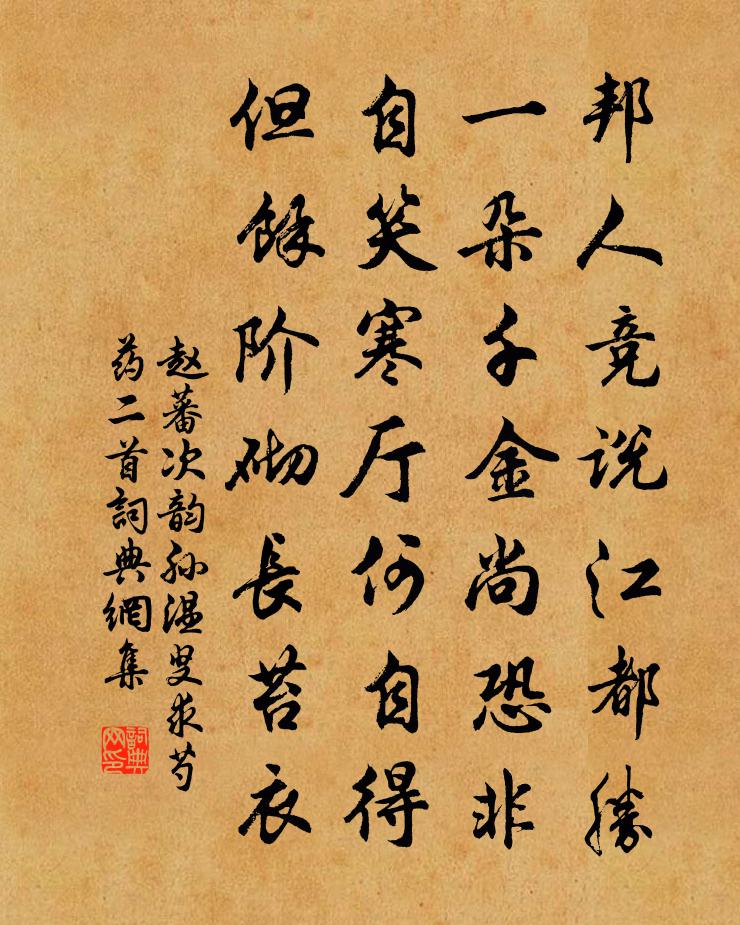 邦人竞説江都勝
一朵千金尚恐非
自笑寒厅何自得
但餘阶砌長苔衣
赵蕃次韵孙温叟求芍
药二首詞典網集
詞典网印